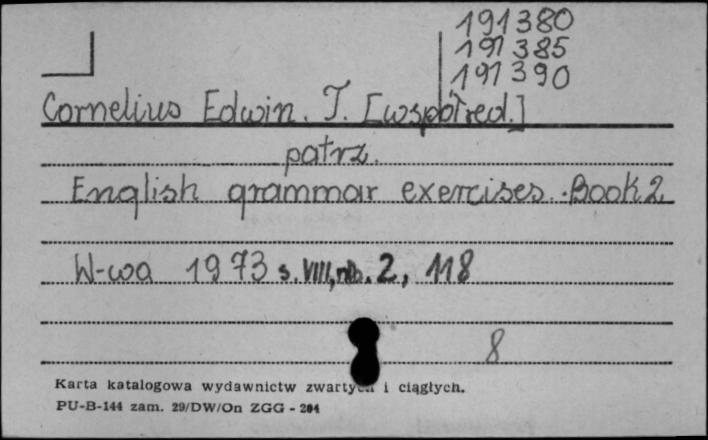 191380
191385
191390
Cornelius Edwin. T. [współred.]
patrz.
English grammar exercises. Book 2
W-wa 1973 s. VIII, nlb. 2, 118
8
Karta katalogowa wydawnictw zwartych i ciągłych.
PU-B-144 zam. 29/DW/On ZGG - 204